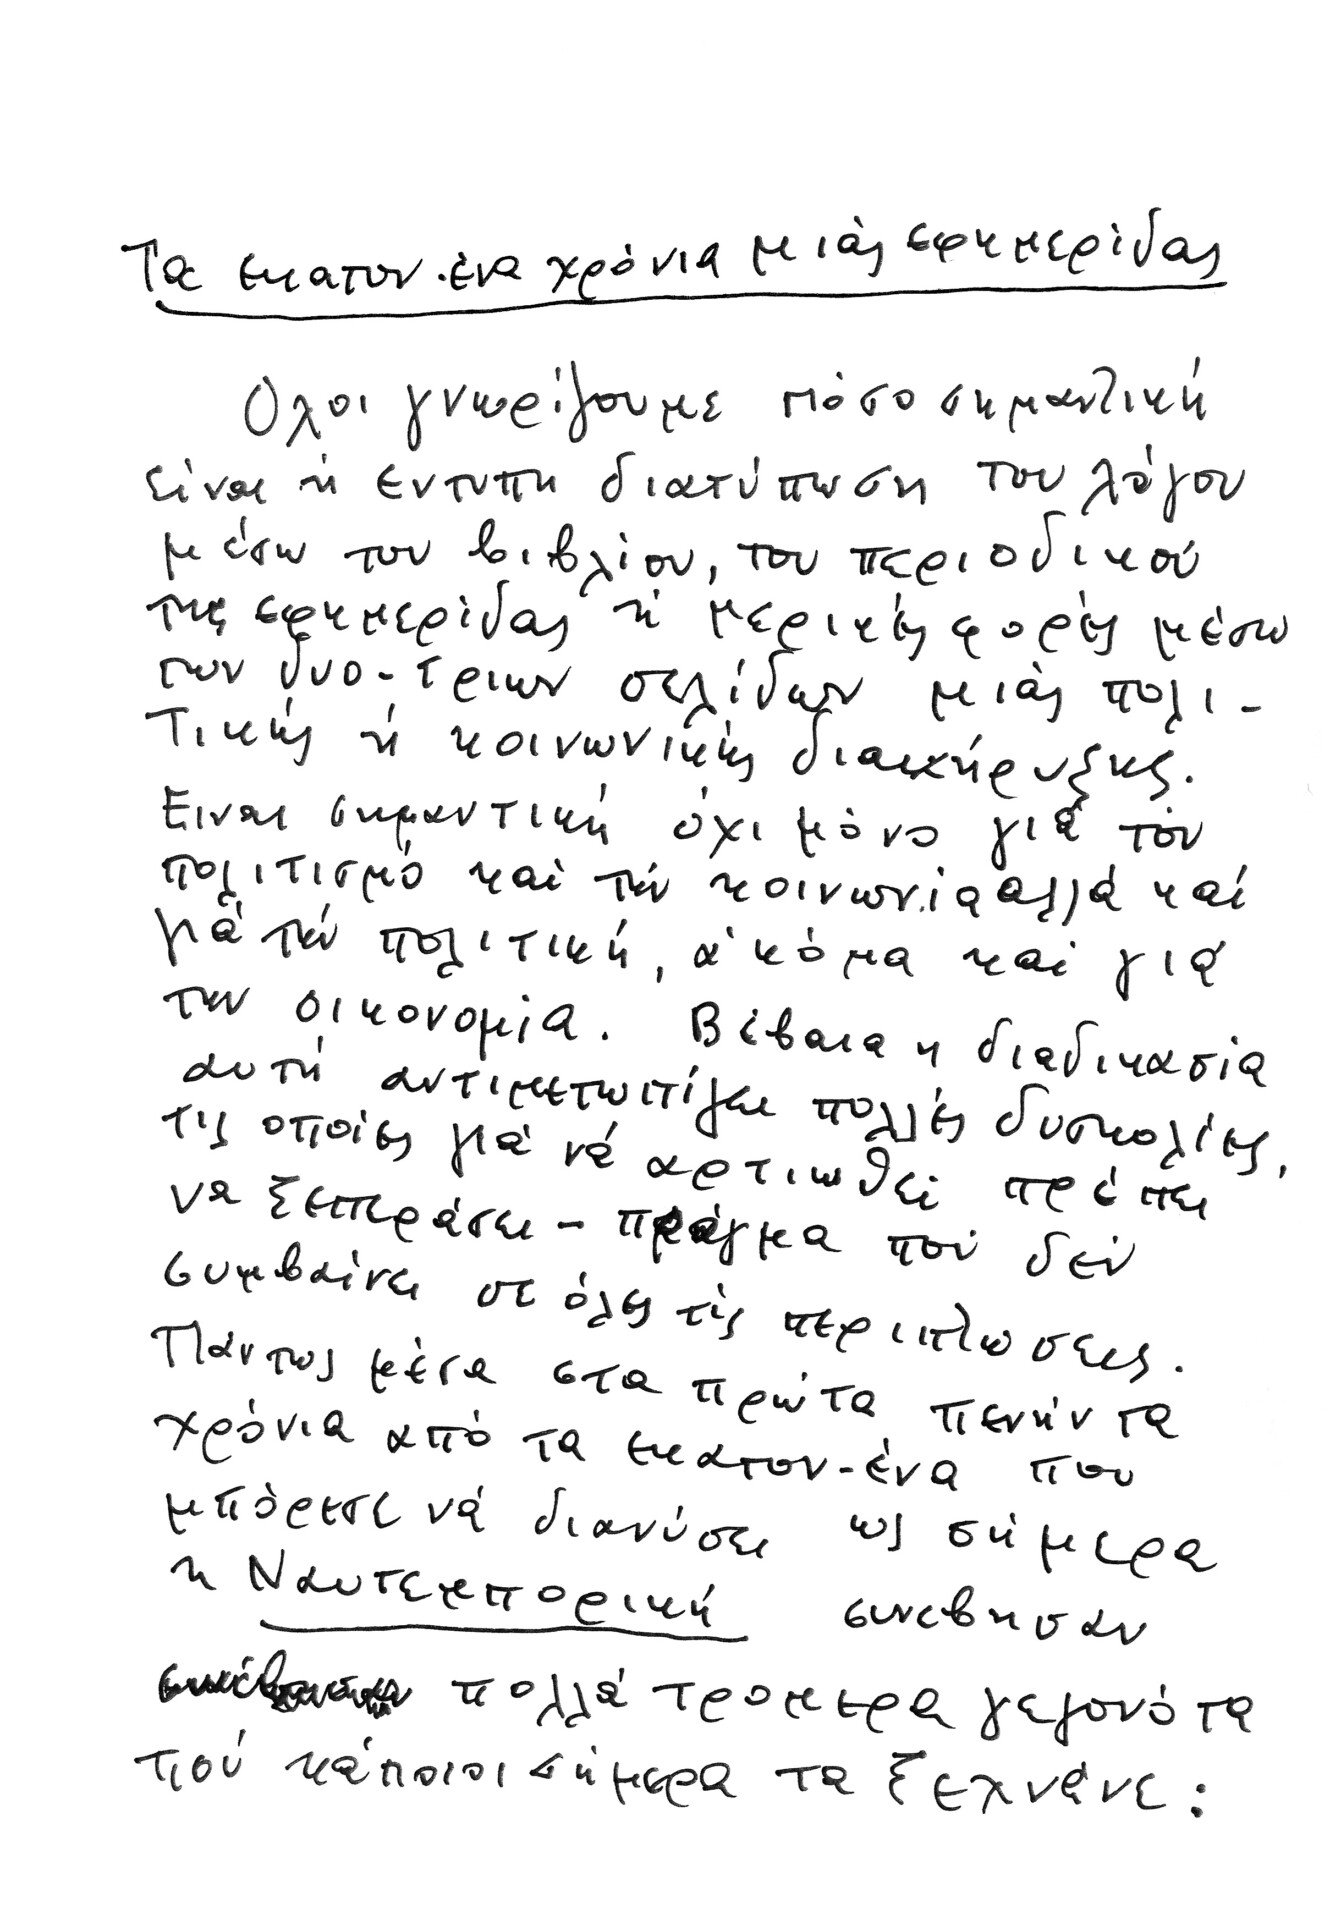 Τα εκατον-ένα χρόνια μιάς εφημερίδας
Όλοι γνωρίζουμε πόσο σημαντική
είναι η εντυπη διατύπωση του λόγου
μέσω του βιβλίου, του περιοδικού
της εφημερίδας ή μερικές φορές μέσω
των δυο-τριων σελίδων μιάς πολι-
τικής ή κοινωνικής διακήρυξης.
Ειναι σημαντική όχι μόνο γιά τόν
πολιτισμό καί τήν κοινωνία αλλά καί
γιά τήν πολιτική, ακόμα καί γιά
την οικονομία. Βέβαια η διαδικασία
αυτή αντιμετωπίζει πολλές δυσκολίες,
τις οποίες γιά νά αρτιωθεί πρέπει
να ξεπεράσει - πράγμα πού δεν
συμβαίνει σε όλες τίς περιπτώσεις.
Πάντως μέσα στα πρώτα πενήντα
χρόνια από τα εκατον-ένα που
μπόρεσε νά διανύσει ως σήμερα
η Ναυτεμπορική συνεβησαν
πολλά τρομερα γεγονότα
πού κάποιοι σήμερα τα ξεχνάνε: